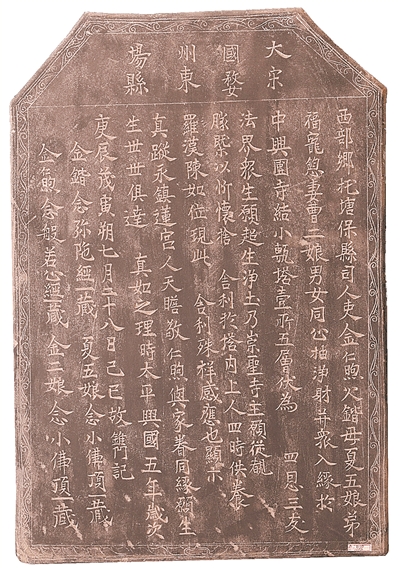 大宋
國婺
州東
場縣
西部鄉托塘保縣司人吏金仁煦火鍇母夏五娘弟
福寵息妻曹二娘男女同公抽淨財并眾入緣於
中興國寺結小甎塔壹所五層伏為 四恩三友
法界眾生願超生淨土乃崇聖寺主願從覩
勝槩以忻懷捨 舍利於塔內上人四時供養
羅漢陳如位現此 舍利殊祥感應也顯示
真蹤永鎮蓮宮人天瞻敬仁煦與家眷同緣願生
生世世俱達 真如之理時太平興國五年歲次
庚辰戊寅朔七月二十八日己巳故雙門記
金鍇念弥陁經一藏 夏五娘念小佛頂一藏
金煦念般若心經一藏 金二娘念小佛頂一藏